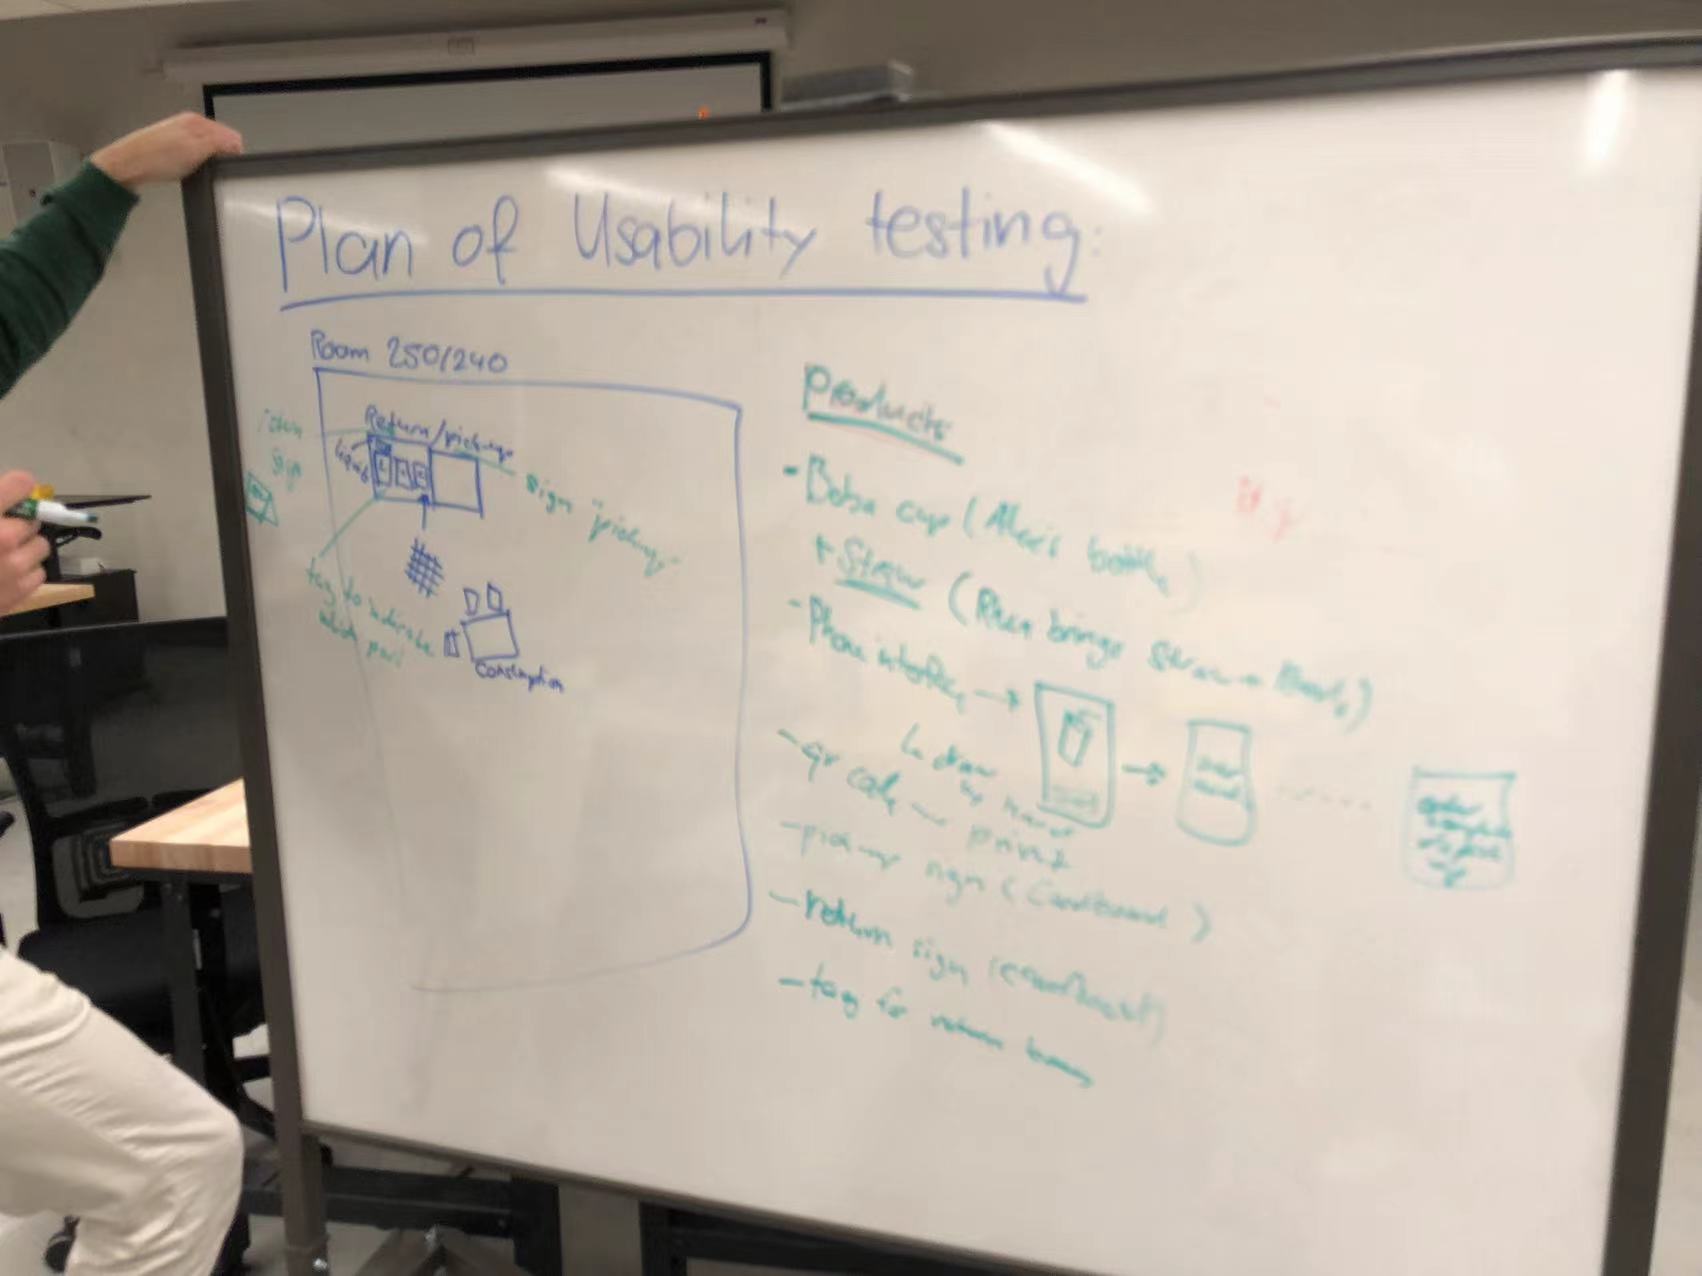 Plan of Usability testing:
Room 250/240
Return/pickup
liquids
return
sign
sign "pickup"
tag to indicate
which part
Consumption
Products
- Boba cup (Alexis bottle)
+ Straw (brings straw
- Phone interface →
↳ draw by hand
- qr code print
- pick-up sign (Cardboard)
- return sign (cardboard)
- tag for return
order